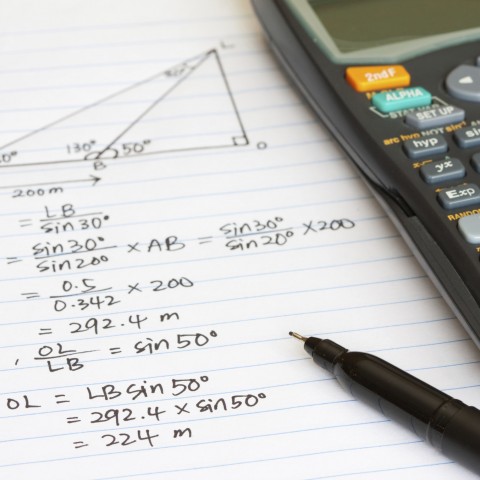 L
130° 50° O
B
200m
= LB / sin 30°
= sin 30° / sin 20° × AB = sin 30° / sin 20° × 200
= 0.5 / 0.342 × 200
= 292.4 m
OL / LB = sin 50°
OL = LB sin 50°
= 292.4 × sin 50°
= 224 m
2ndF
ALPHA
SET UP
hyp
sin
Exp